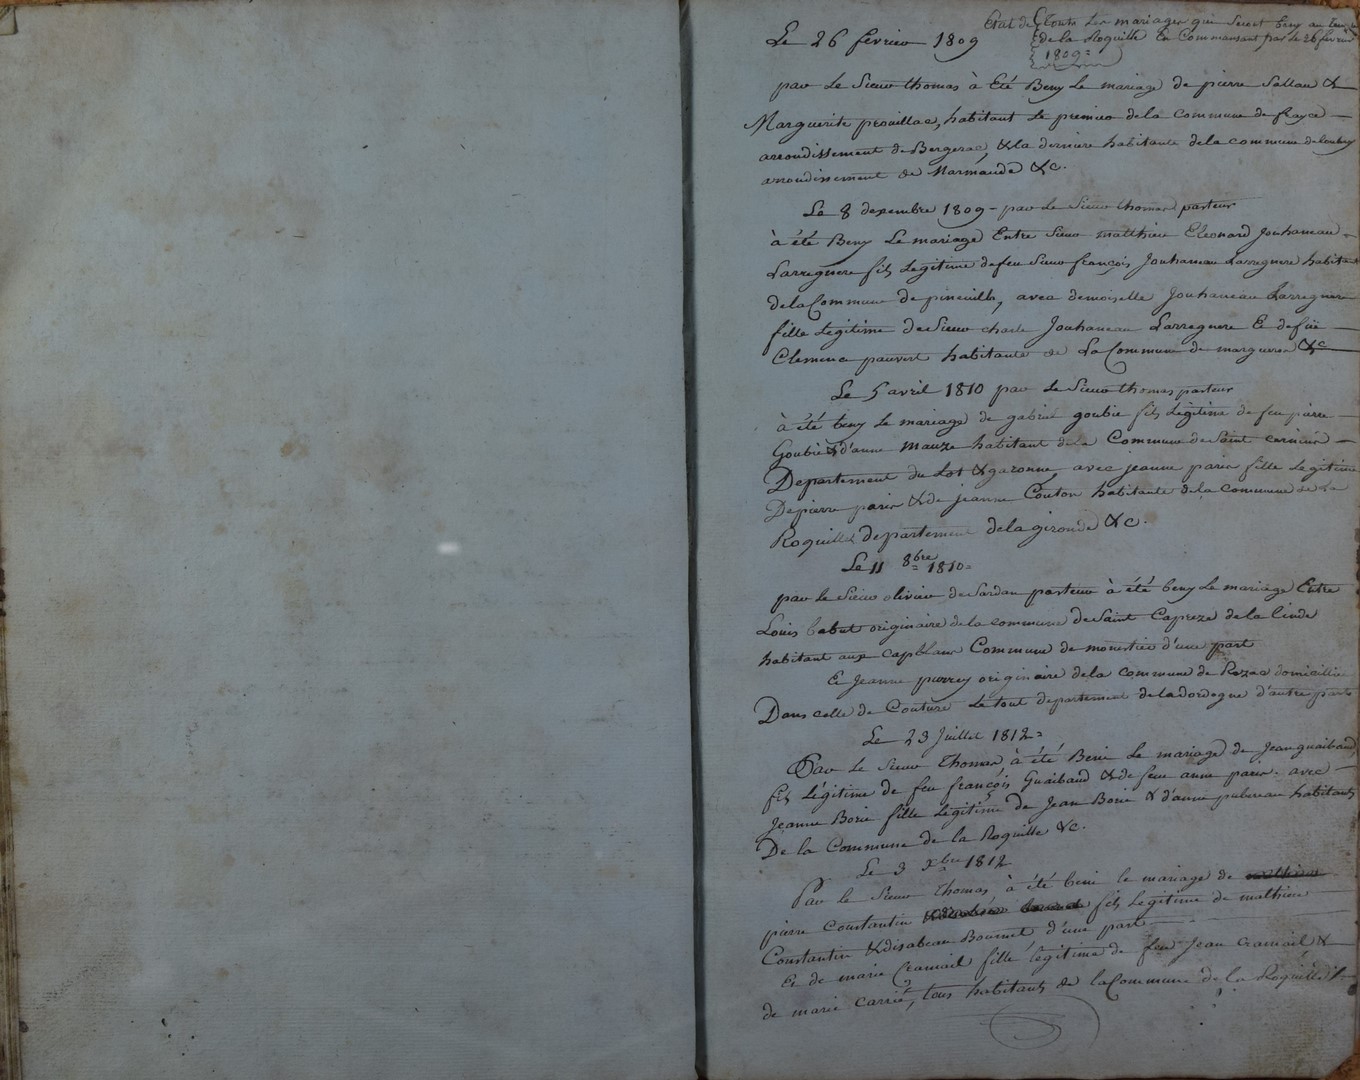 Etat de Toute Les mariages qui Seront beny au Temple
de la Roquille En Commansant par le 26 fevrier
1809=
Le 26 fevrier 1809
par Le Sieur thomas à Eté Beny Le mariage de pierre Sallau &
Marguerite prouillac, habitant Le premier dela Commune de
arrondissement de Bergerac, & la derniere habitante dela commune de loubes
arrondissement de Marmande &c.
Le 8 dexembre 1809 - par Le Sieur thomas pasteur
à été Beny Le mariage Entre Sieur matthieu Eleonard Jouhaneau
Larreguere fils Legitime de feu Sieur françois Jouhaneau Larreguere habitant
de la Commune de pineuilh, avec demoiselle Jouhaneau Larreguere
fille Legitime de Sieur charle Jouhaneau Larreguere E de füe
Clemence pauvert habitante de La Commune de margueron &c
Le 5 avril 1810 par Le Sieur thomas pasteur
à été beny Le mariage de gabriel goubie fils Legitime de feu pierre
Goubie & d'anne Mauze habitant dela Commune de Saint cernin
Departement du Lot & garonne avec jeanne paris fille Legitime
De pierre paris & de jeanne Couton habitante dela commune de La
Roquille departement dela gironde &c.
Le 11 8bre 1810=
par le Sieur olivier de Sardan pasteur à été beny Le mariage Entre
Louis babut originaire dela commune de Saint Capreze de la linde
habitant aux Capblanc Commune de monestier d'une part
E Jeanne purrey originaire dela commune de Razac domiciliée
Dans celle de Couture Le tout departement dela dordogne d'autre part
Le 23 Juillet 1812=
Par Le Sieur Thomas à été Beni Le mariage de Jean guaibaud
fils Légitime de feu françois Guaibaud & de feue anne paris. avec
Jeanne Borie fille Legitime de Jean Borie & d'anne habitants
De la Commune de la Roquille &c.
Le 3 xbre 1812
Par le Sieur Thomas à été beni le mariage de
pierre Constantin fils Legitime de mathieu
Constantin & d'isabeau Bournet d'une part
Et de marie Cramail fille legitime de feu Jean Cramail &
de marie carrié, tous habitants de la Commune de la Roquille &